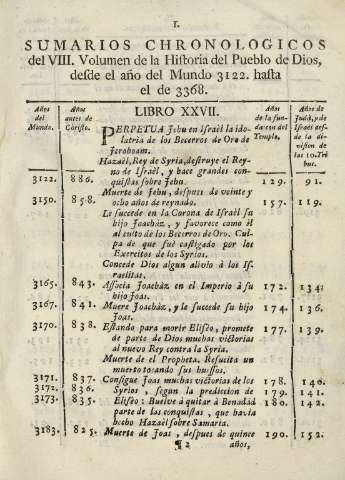 I.
SUMARIOS CHRONOLOGICOS
del VIII. Volumen de la Historia del Pueblo de Dios,
desde el año del Mundo 3122. hasta
el de 3368.
Años del Mundo.
Años antes de Christo.
LIBRO XXVII.
Años de la fundacion del Templo.
Años de Judá, y de Israèl desde la division de las 10. Tribus.
PERPETUA Jehu en Israèl la idolatria
de los Becerros de Oro de
Jeroboam.
Hazaèl, Rey de Syria, destruye el Reyno
de Israèl, y hace grandes con-
3122. 886. quistas sobre Jehu. 129. 91.
Muerte de Jehu, despues de veinte y
3150. 858. ocho años de reynado. 157. 119.
Le succede en la Corona de Israèl su
hijo Joacház, y favorece como èl
al culto de los Becerros de Oro. Culpa
de que fuè castigado por los
Exercitos de los Syrios.
Concede Dios algun alivio à los Israelitas.
3165. 843. Associa Joacház en el Imperio à su 172. 134.
hijo Joas.
3167. 841. Muere Joacház, y le succede su hijo 174. 136.
Joas.
3170. 838. Estando para morir Elisèo, promete 177. 139.
de parte de Dios muchas victorias
al nuevo Rey contra la Syria.
Muerte de el Propheta. Resucita un
muerto tocando sus huessos.
3171. 837. Consigue Joas muchas victorias de los 178. 140.
3172. 836. Syrios, segun la prediccion de 179. 141.
3173. 835. Elisèo: Buelve à quitar à Benadàd 180. 142.
parte de las conquistas, que havia
hecho Hazaèl sobre Samaria.
3183. 825. Muerte de Joas, despues de quince 190. 152.
¶ 2 años,